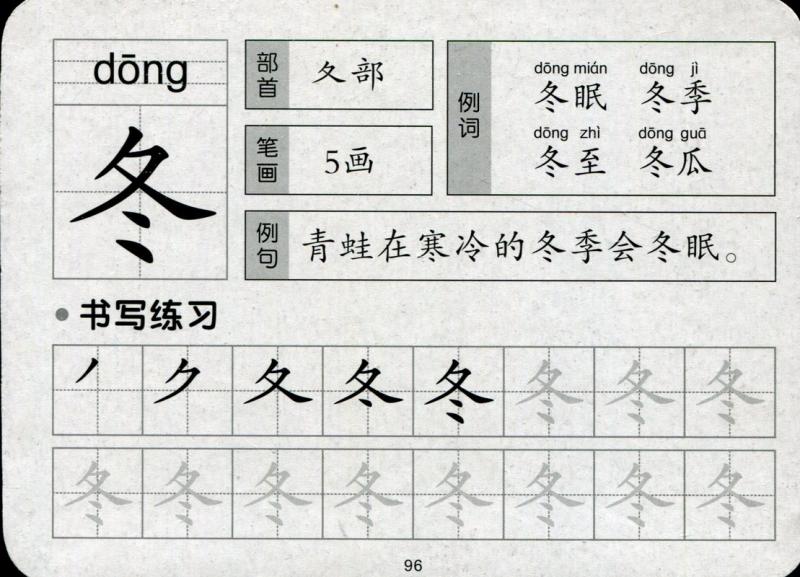 dōng
冬
部首 夂部
笔画 5画
例词
dōng mián dōng jì
冬眠 冬季
dōng zhì dōng guā
冬至 冬瓜
例句 青蛙在寒冷的冬季会冬眠。
书写练习
丿 ク 夂 冬 冬 冬 冬
冬 冬 冬 冬 冬 冬 冬 冬
96